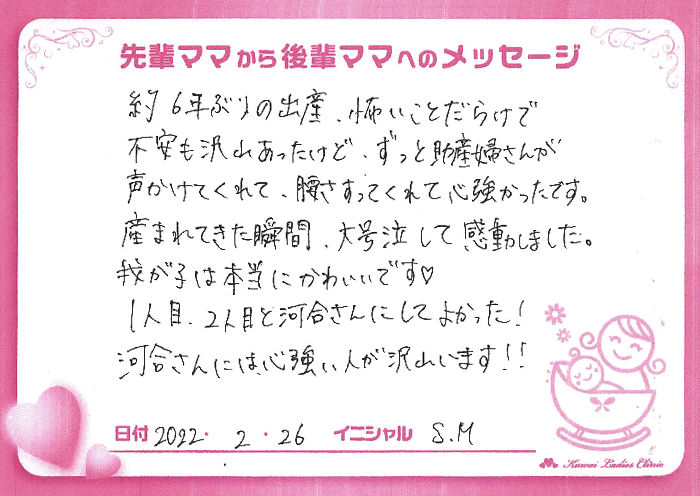 先輩ママから後輩ママへのメッセージ
約6年ぶりの出産、怖いことだらけで
不安も沢山あったけど、ずっと助産婦さんが
声かけてくれて、腰さすってくれて心強かったです。
産まれてきた瞬間、大号泣して感動しました。
我が子は本当にかわいいです♡
1人目、2人目と河合さんにしてよかった!
河合さんには心強い人が沢山います!!
日付 2022・2・26 イニシャル S.M
Kawai Ladies Clinic